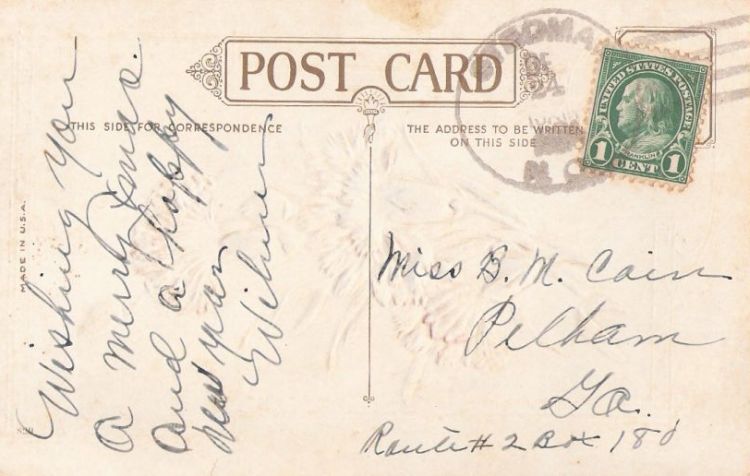 POST CARD
THIS SIDE FOR CORRESPONDENCE
THE ADDRESS TO BE WRITTEN
ON THIS SIDE
UNITED STATES POSTAGE
FRANKLIN
1 CENT 1
24
N.C.
MADE IN U.S.A.
Wishing you
a merry Xmas.
and a Happy
new year
Wilmer
Miss B. M. Cain
Pelham
Ga.
Route # 2 Box 180